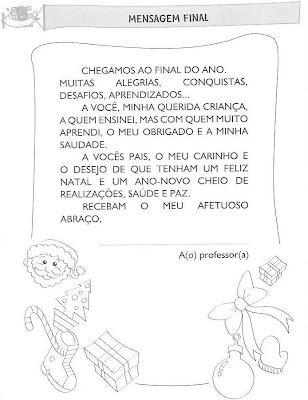 MENSAGEM FINAL
CHEGAMOS AO FINAL DO ANO.
MUITAS ALEGRIAS, CONQUISTAS,
DESAFIOS, APRENDIZADOS...
A VOCÊ, MINHA QUERIDA CRIANÇA,
A QUEM ENSINEI, MAS COM QUEM MUITO
APRENDI, O MEU OBRIGADO E A MINHA
SAUDADE.
A VOCÊS PAIS, O MEU CARINHO E
O DESEJO DE QUE TENHAM UM FELIZ
NATAL E UM ANO-NOVO CHEIO DE
REALIZAÇÕES, SAÚDE E PAZ.
RECEBAM O MEU AFETUOSO
ABRAÇO,
A(o) professor(a)